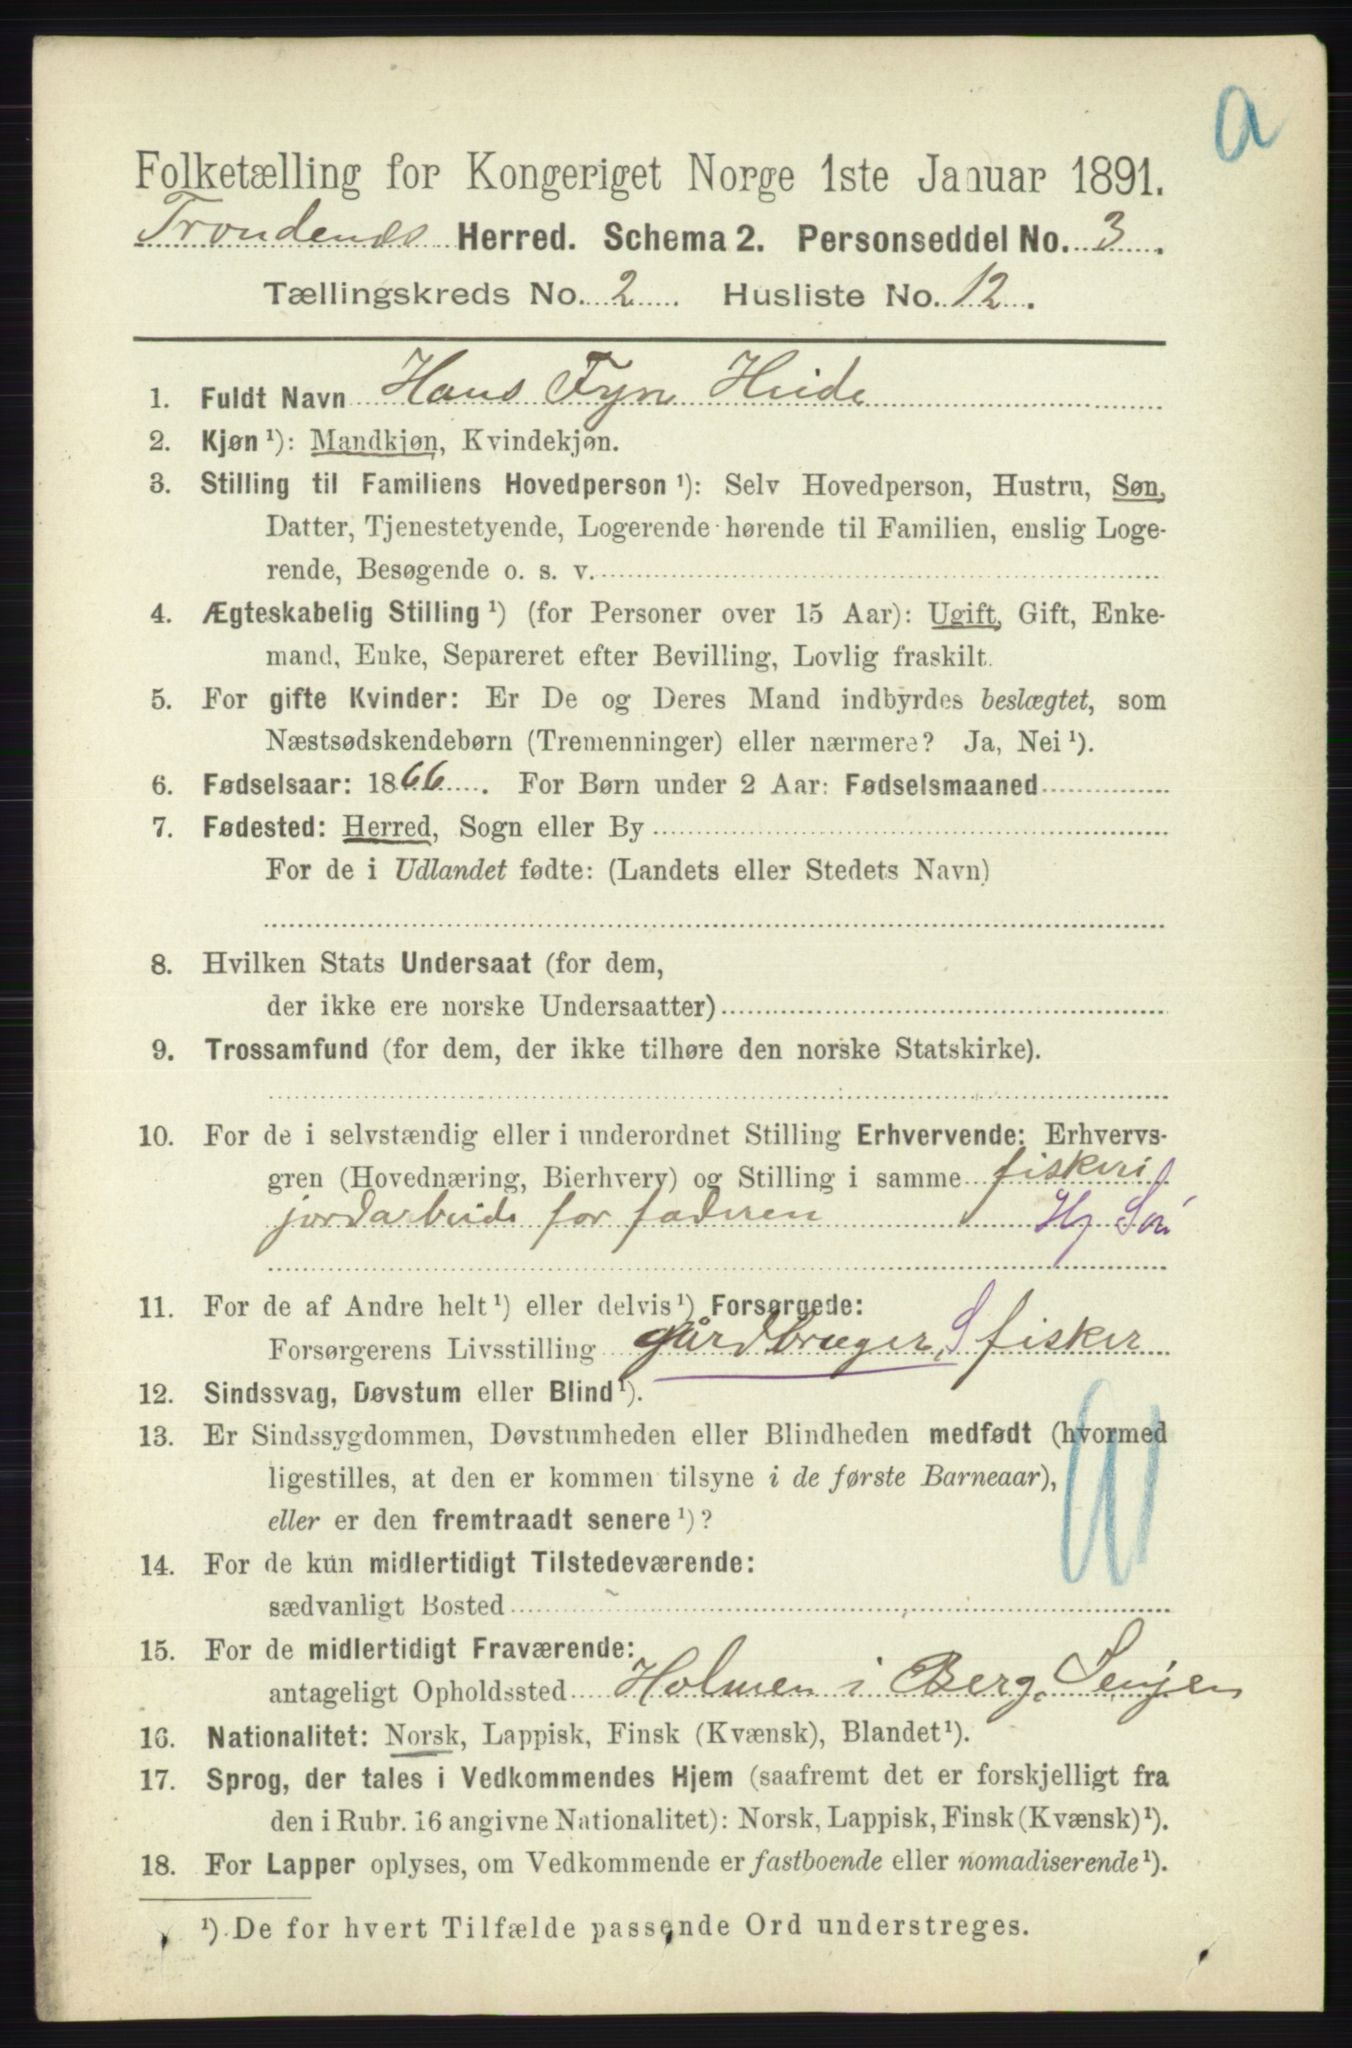 a
Folketælling for Kongeriget Norge 1ste Januar 1891.
Trondenes Herred. Schema 2. Personseddel No. 3.
Tællingskreds No. 2. Husliste No. 12.
1. Fuldt Navn Hans Fyn Heide
2. Kjøn ¹): Mandkjøn, Kvindekjøn.
3. Stilling til Familiens Hovedperson ¹): Selv Hovedperson, Hustru, Søn,
Datter, Tjenestetyende, Logerende hørende til Familien, enslig Loge-
rende, Besøgende o. s. v.
4. Ægteskabelig Stilling ¹) (for Personer over 15 Aar): Ugift, Gift, Enke-
mand, Enke, Separeret efter Bevilling, Lovlig fraskilt.
5. For gifte Kvinder: Er De og Deres Mand indbyrdes beslægtet, som
Næstsødskendebørn (Tremenninger) eller nærmere? Ja, Nei ¹).
6. Fødselsaar: 1866. For Børn under 2 Aar: Fødselsmaaned
7. Fødested: Herred, Sogn eller By
For de i Udlandet fødte: (Landets eller Stedets Navn)
8. Hvilken Stats Undersaat (for dem,
der ikke ere norske Undersaatter)
9. Trossamfund (for dem, der ikke tilhøre den norske Statskirke).
10. For de i selvstændig eller i underordnet Stilling Erhvervende: Erhvervs-
gren (Hovednæring, Bierhverv) og Stilling i samme fiskeri
jordarbeide for faderen Hj Søn
11. For de af Andre helt ¹) eller delvis ¹) Forsørgede:
Forsørgerens Livsstilling gårdbruger, S fisker
12. Sindssvag, Døvstum eller Blind ¹).
13. Er Sindssygdommen, Døvstumheden eller Blindheden medfødt (hvormed
ligestilles, at den er kommen tilsyne i de første Barneaar),
eller er den fremtraadt senere ¹)?
14. For de kun midlertidigt Tilstedeværende:
sædvanligt Bosted
15. For de midlertidigt Fraværende:
antageligt Opholdssted Holmen i Berg, Senjen
16. Nationalitet: Norsk, Lappisk, Finsk (Kvænsk), Blandet ¹).
17. Sprog, der tales i Vedkommendes Hjem (saafremt det er forskjelligt fra
den i Rubr. 16 angivne Nationalitet): Norsk, Lappisk, Finsk (Kvænsk) ¹).
18. For Lapper oplyses, om Vedkommende er fastboende eller nomadiserende ¹).
¹). De for hvert Tilfælde passende Ord understreges.